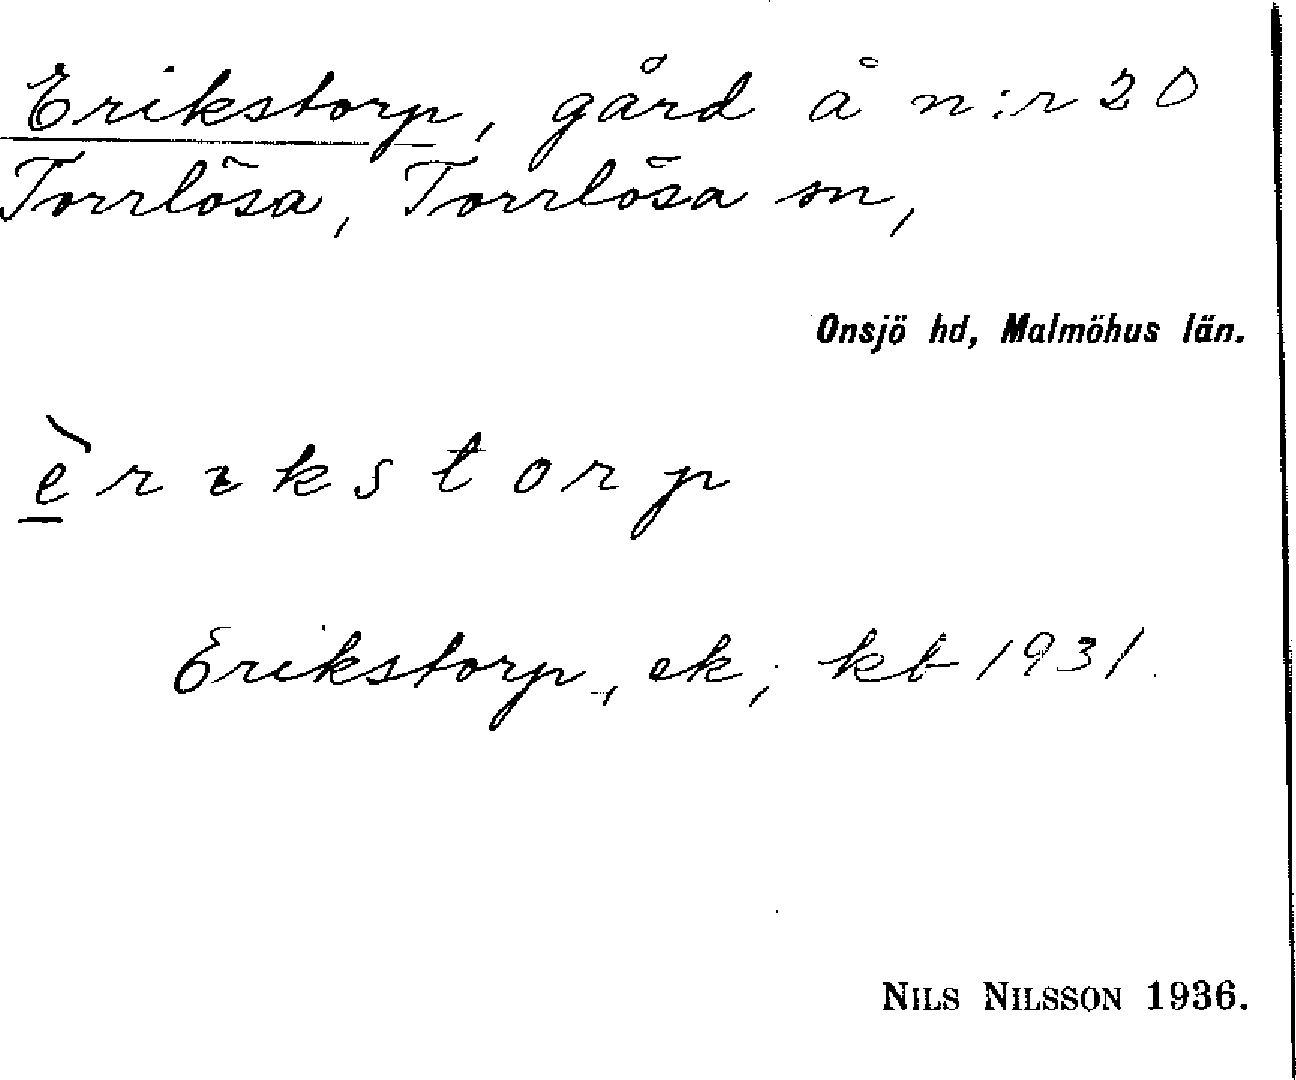 Erikstorp, gård å n:r 20
Torrlösa, Torrlösa sn,
Onsjö hd, Malmöhus län.
è̱rıkstorp
Erikstorp, ek; kb 1931.
NILS NILSSON 1936.